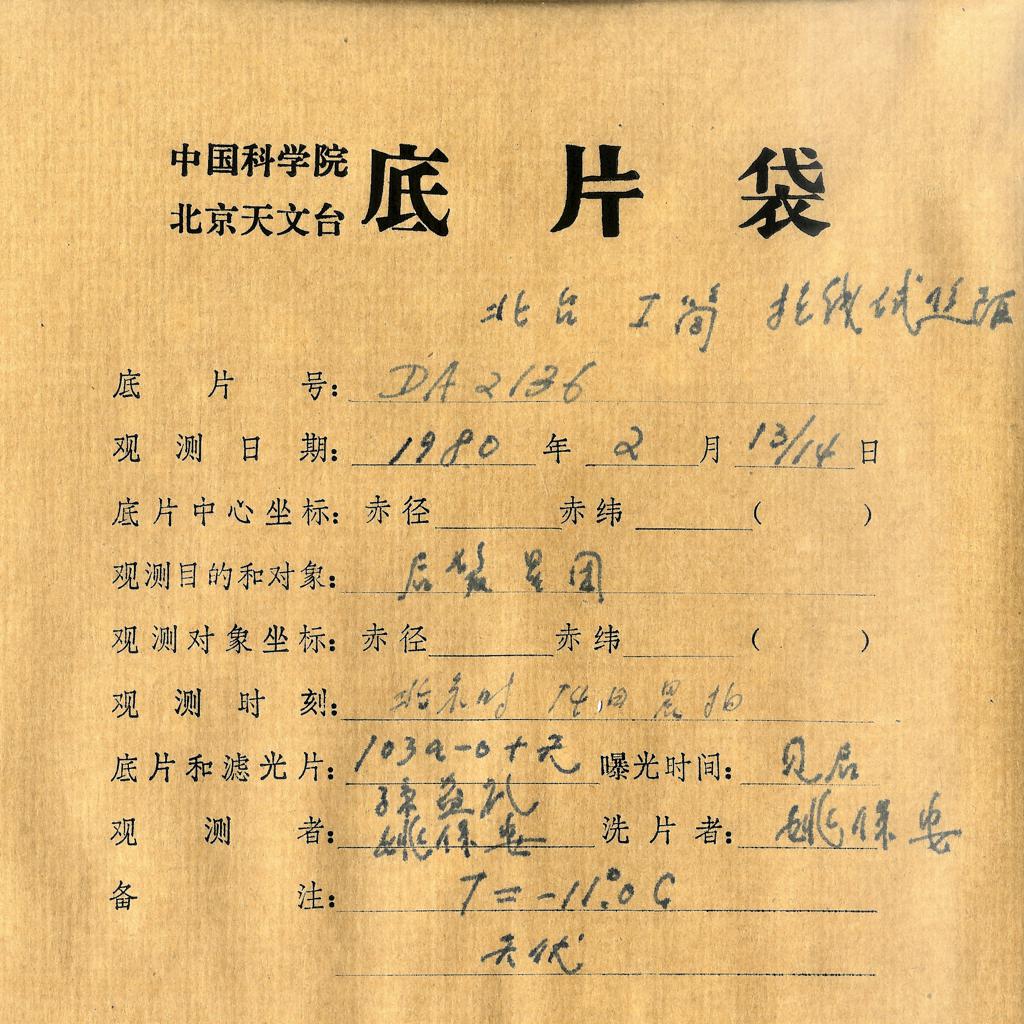 中国科学院
北京天文台
底片袋
北台 工简
底片号: DA2136
观测日期: 1980 年 2 月 13/14 日
底片中心坐标: 赤径 赤纬 ( )
观测目的和对象: 后发星团
观测对象坐标: 赤径 赤纬 ( )
观测时刻: 北京时 14日晨拍
底片和滤光片: 103a-o+无 曝光时间: 见后
孙益礼
观测者: 姚保安 洗片者: 姚保安
备注: T=-11.°0 C